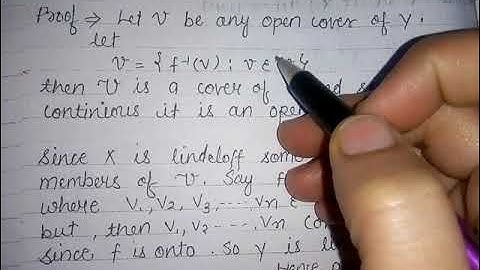 Proof ⇒ Let V be any open cover of Y.
let
V = { f⁻¹(V) : V ∈
then V is a cover of
continious it is an open
Since X is lindeloff some
members of V. Say f
where V₁, V₂, V₃, ---- Vn ∈
but, then V₁, V₂ ---- Vn
since f is onto. So Y is
Hence